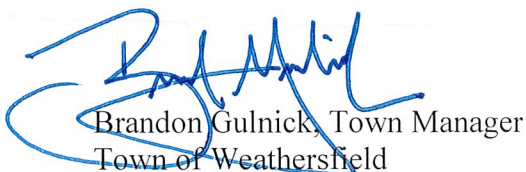 Brandon Gulnick, Town Manager
Town of Weathersfield